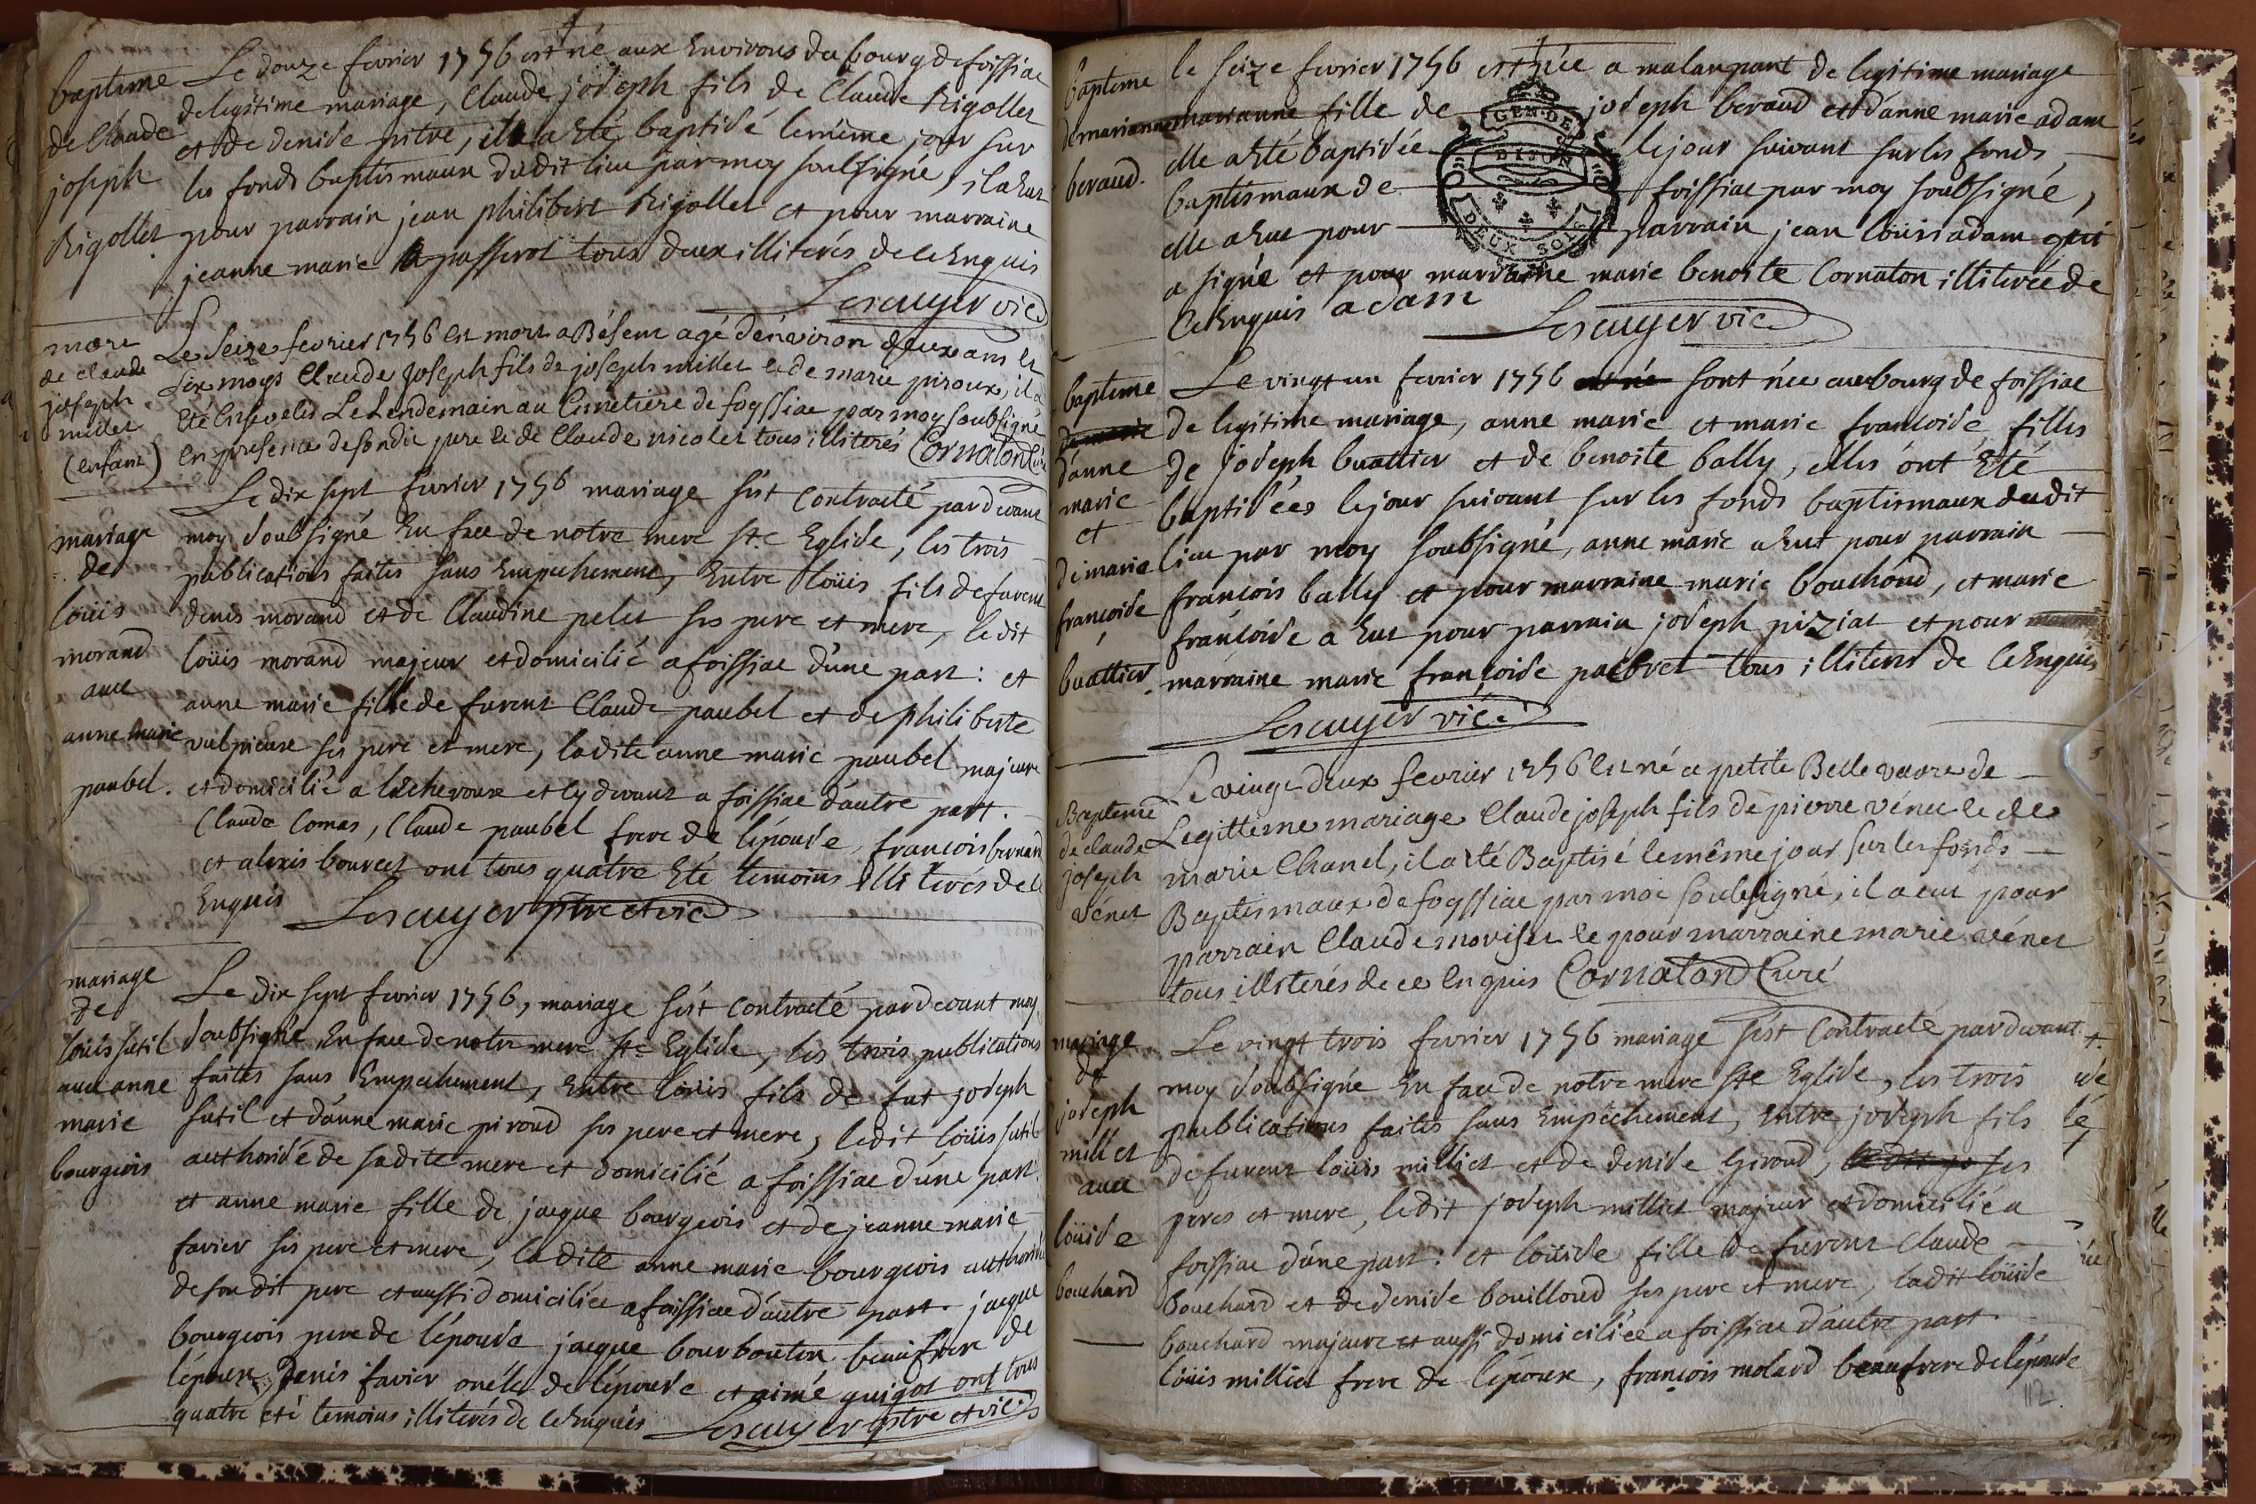 bapteme
de Claude
joseph
Rigollet
Le douze fevrier 1756 est né aux Environs du bourg de foissiac
de legitime mariage, Claude joseph fils de Claude Rigollet
et de denise pitre, il a Eté baptisé le même jour sur
les fonds baptismaux dudit lieu par moy soubsigné, il a Eut
pour parrain jean philibert Rigollet et pour marraine
jeanne marie passerot tous deux illiterés de ce Enquis
Lescuyer vic.
de claude
joseph
millet
(enfant)
Le Seize fevrier 1756 est mort a Bésent agé d'environ deux ans et
six moys Claude joseph fils de joseph millet et de marie piroux, il a
Eté Ensevelis Le Lendemain au Cimetiere de foyssiac par moy soubsigné
En presence de son dit pere et de Claude nicolet tous illiterés Cornaton Curé
mariage
de
louis
morand
avec
anne marie
paubel.
Le dix sept fevrier 1756 mariage s'est contracté pardevant
moy soubsigné En face de notre mere Ste Eglise, les trois
publications faites sans Empechement, Entre loüis fils de furent
denis morand et de Claudine pelet ses pere et mere, ledit
loüis morand majeur et domicilié a foissiac d'une part : et
anne marie fille de furent Claude paubel et de philiberte
vulpieuse ses pere et mere, ladite anne marie paubel majeure
et domicilié a lécheroux et cy devant a foissiac d'autre part.
Claude Comas, Claude paubel frere de l'épouse, francois bernard
et alexis bourcet ont tous quatre Eté temoins illiterés de ce
Enquis Lescuyer ptre et vic.
mariage
de
loüis sutil
avec anne
marie
bourgeois
Le dix sept fevrier 1756, mariage s'est contracté pardevant moy
soubsigné En face de notre mere Ste Eglise, les trois publications
faites sans Empechement, Entre loüis fils de fut joseph
sutil et d'anne marie piroud ses pere et mere, ledit loüis sutil
authorisé de sadite mere et domicilié a foissiac d'une part.
et anne marie fille de jacque bourgeois et de jeanne marie
favier ses pere et mere, ladite anne marie bourgeois authorisée
de son dit pere et aussi domiciliée a foissiac d'autre part. jacque
bourgeois pere de l'épouse jacque bourbouton beaufrere de
l'époux, denis favier oncle de l'épouse et aimé guigot ont tous
quatre été temoins illiterés de ce Enquis Lescuyer ptre et vic.
bapteme
de marianne
beraud.
le seize fevrier 1756 est née a malaupant de legitime mariage
marianne fille de joseph beraud et d'anne marie adam
elle a Eté baptisée le jour suivant sur les fonds
baptismaux de foissiac par moy soubsigné,
elle a Eut pour parrain jean loüis adam qui
a signé et pour marraine marie benoite Cornaton illiterée de
ce Enquis adam
Lescuyer vic.
GEN. DE
DIJON
DEUX SOLS
bapteme
d'anne
marie
et
de marie
francoise
buattier
Le vingt un fevrier 1756 sont née au bourg de foissiac
de legitime mariage, anne marie et marie francoise filles
de joseph buattier et de benoite bally, elles ont Eté
baptisées le jour suivant sur les fonds baptismaux dudit
lieu par moy soubsigné, anne marie a Eut pour parrain
françois bally et pour marraine marie bouchoud, et marie
francoise a Eut pour parrain joseph piziat et pour
marraine marie françoise tous illiterés de ce Enquis
Lescuyer vic.
Bapteme
de claude
joseph
vénet
Le vingt deux fevrier 1756 est né a petite Belle vavre de
Legittime mariage Claude joseph fils de pierre vénet et de
marie Chanel, il a eté Baptisé le même jour sur les fonds
Baptismaux de foyssiac par moi soubsigné, il a eut pour
parrain Claude moriset et pour marraine marie vénet
tous illiterés de ce Enquis Cornaton Curé
mariage
de
joseph
milliet
avec
loüise
bouchard
Le vingt trois fevrier 1756 mariage s'est contracté pardevant
moy soubsigné En face de notre mere Ste Eglise, les trois
publications faites sans Empechement, Entre joseph fils
de furent loüis milliet et de denise Giroud, ses
peres et mere, ledit joseph milliet majeur et domicilié a
foissiac d'une part : et loüise fille de furent claude
bouchard et de denise bouilloud ses pere et mere, ladit loüise
bouchard majeure et aussi domiciliée a foissiac d'autre part.
loüis milliet frere de l'époux, françois molard beaufrere de l'épouse
112